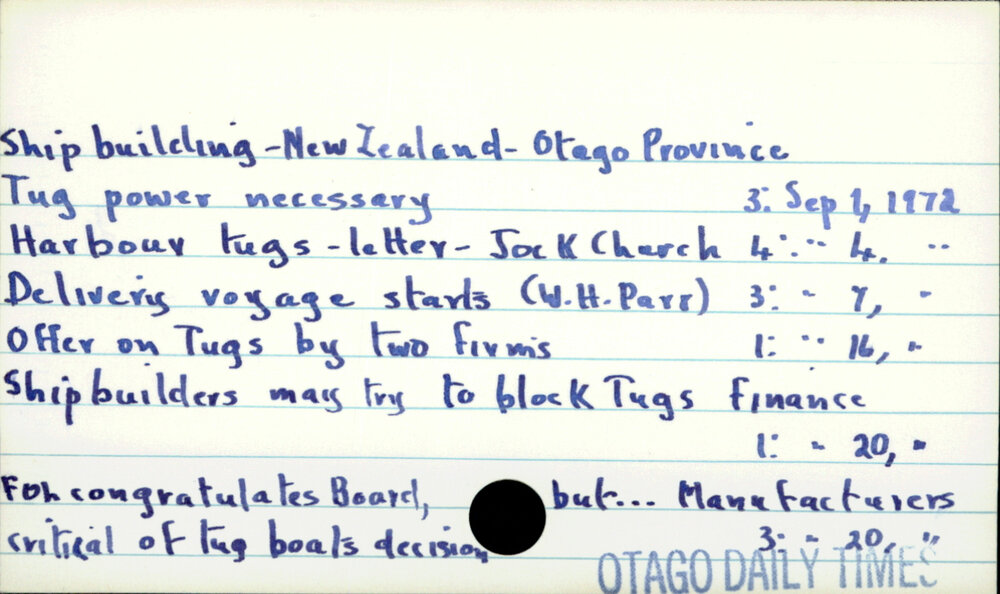 Shipbuilding - New Zealand - Otago Province
Tug power necessary 3: Sep 1, 1972
Harbour tugs - letter - Jock Church 4: " 4, "
Delivery voyage starts (W.H. Parr) 3: " 7, "
Offer on Tugs by two firms 1: " 16, "
Shipbuilders may try to block Tugs finance
1: " 20, "
congratulates Board, but... Manufacturers
critical of tug boats decision 3: " 20, "
OTAGO DAILY TIMES